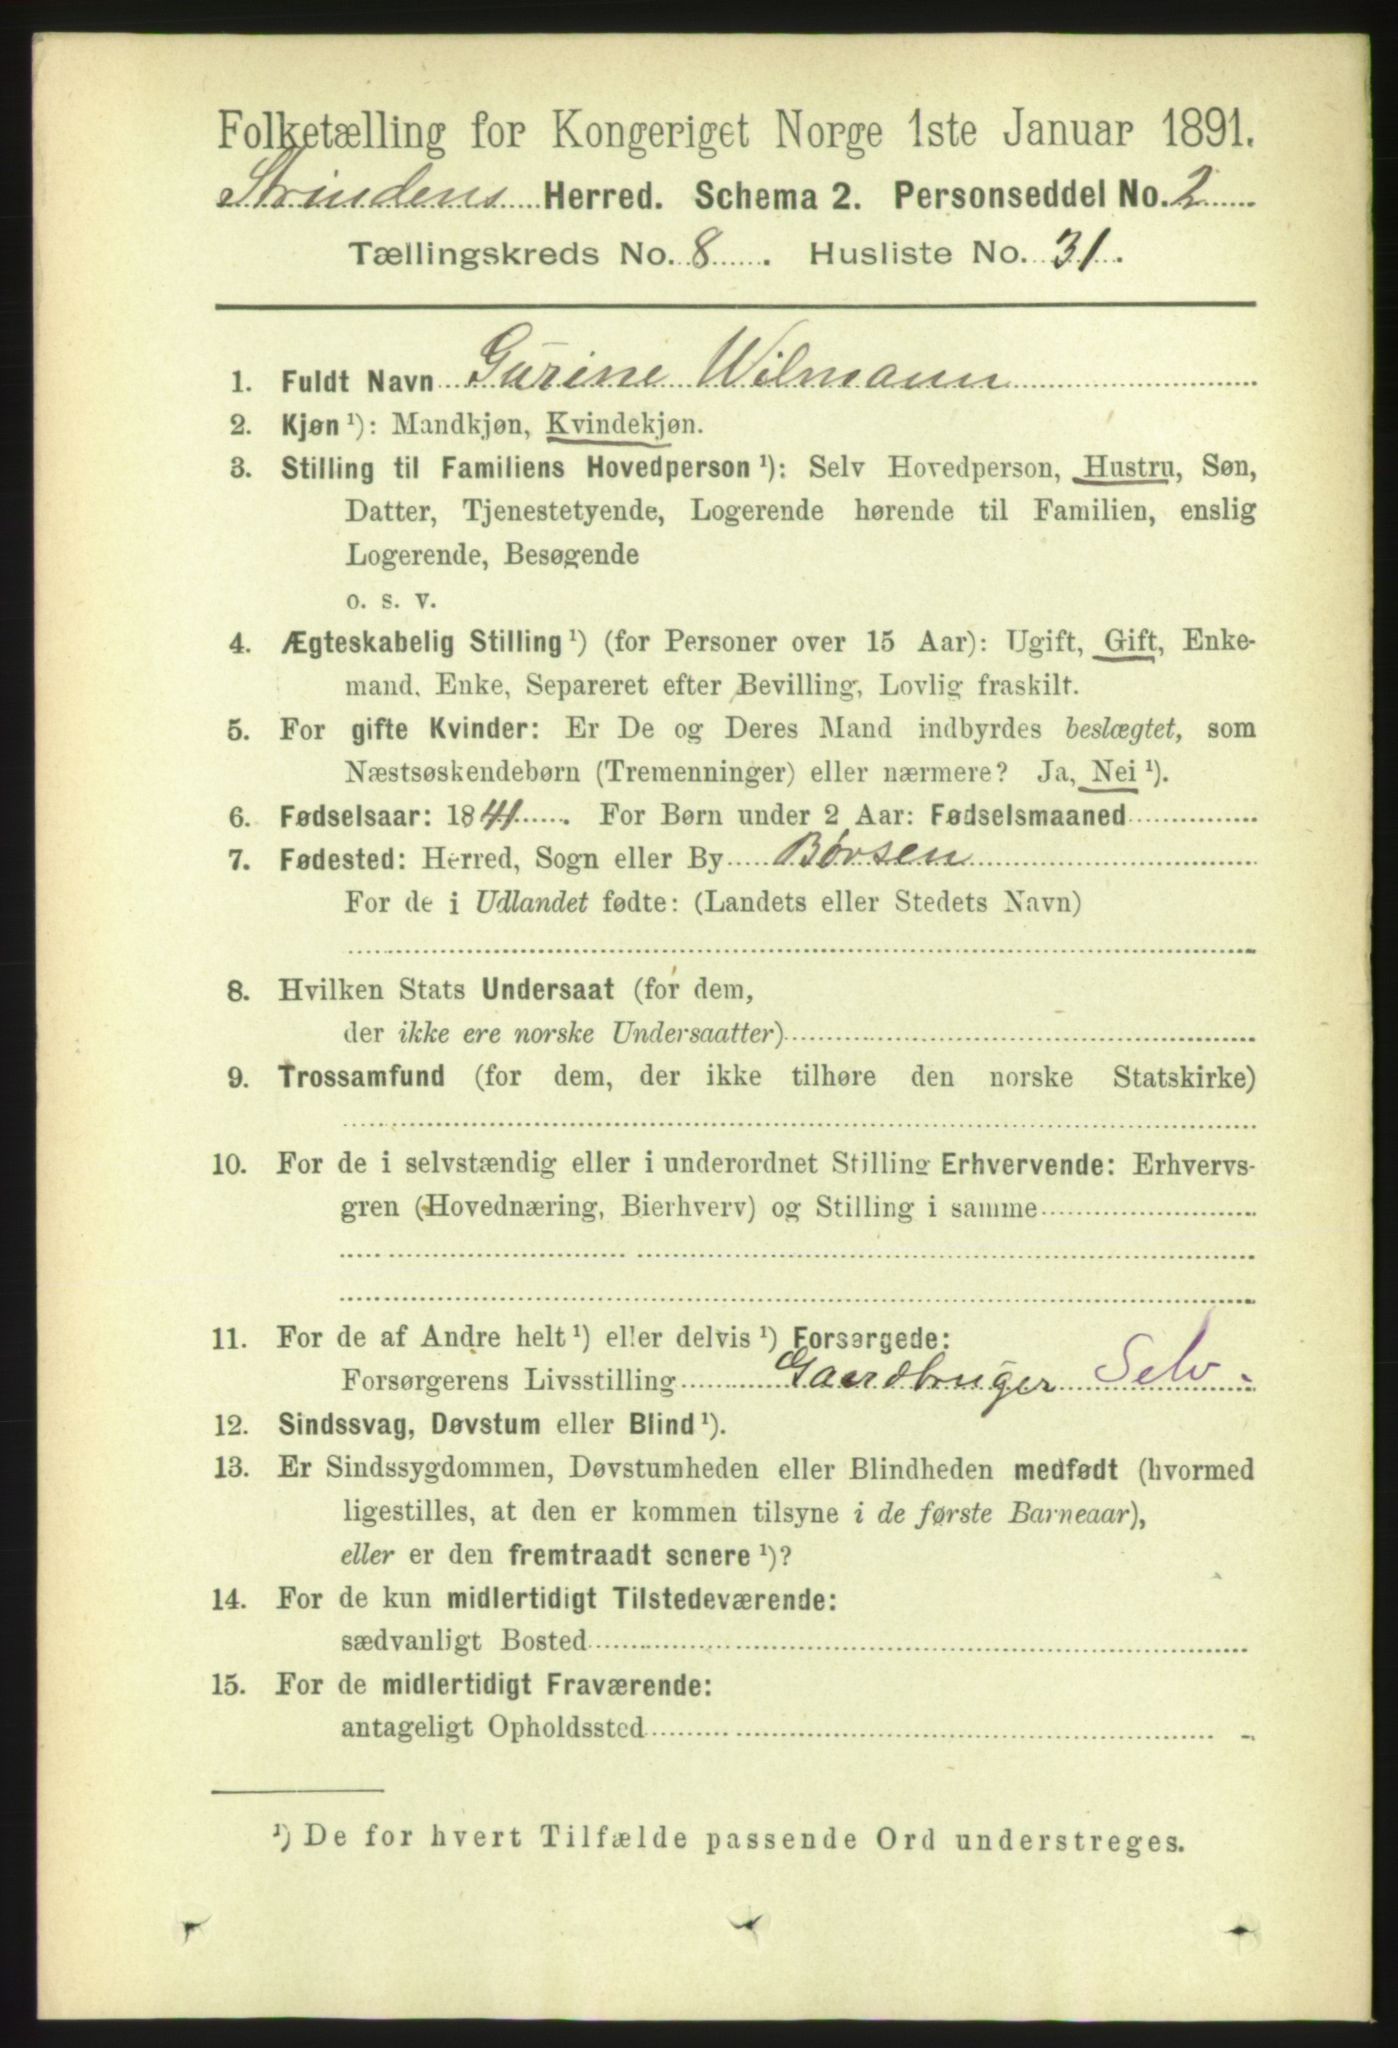 Folketælling for Kongeriget Norge 1ste Januar 1891.
Strindens Herred. Schema 2. Personseddel No. 2
Tællingskreds No. 8. Husliste No. 31.
1. Fuldt Navn Gurine Wilmann
2. Kjøn ¹): Mandkjøn, Kvindekjøn.
3. Stilling til Familiens Hovedperson ¹): Selv Hovedperson, Hustru, Søn,
Datter, Tjenestetyende, Logerende hørende til Familien, enslig
Logerende, Besøgende
o. s. v.
4. Ægteskabelig Stilling ¹) (for Personer over 15 Aar): Ugift, Gift, Enke-
mand, Enke, Separeret efter Bevilling, Lovlig fraskilt.
5. For gifte Kvinder: Er De og Deres Mand indbyrdes beslægtet, som
Næstsøskendebørn (Tremenninger) eller nærmere? Ja, Nei ¹).
6. Fødselsaar: 1841. For Børn under 2 Aar: Fødselsmaaned
7. Fødested: Herred, Sogn eller By Børsen
For de i Udlandet fødte: (Landets eller Stedets Navn)
8. Hvilken Stats Undersaat (for dem,
der ikke ere norske Undersaatter)
9. Trossamfund (for dem, der ikke tilhøre den norske Statskirke)
10. For de i selvstændig eller i underordnet Stilling Erhvervende: Erhvervs-
gren (Hovednæring, Bierhverv) og Stilling i samme
11. For de af Andre helt ¹) eller delvis ¹) Forsørgede:
Forsørgerens Livsstilling Gaardbruger Selv.
12. Sindssvag, Døvstum eller Blind ¹).
13. Er Sindssygdommen, Døvstumheden eller Blindheden medfødt (hvormed
ligestilles, at den er kommen tilsyne i de første Barneaar),
eller er den fremtraadt senere ¹)?
14. For de kun midlertidigt Tilstedeværende:
sædvanligt Bosted
15. For de midlertidigt Fraværende:
antageligt Opholdssted
¹) De for hvert Tilfælde passende Ord understreges.